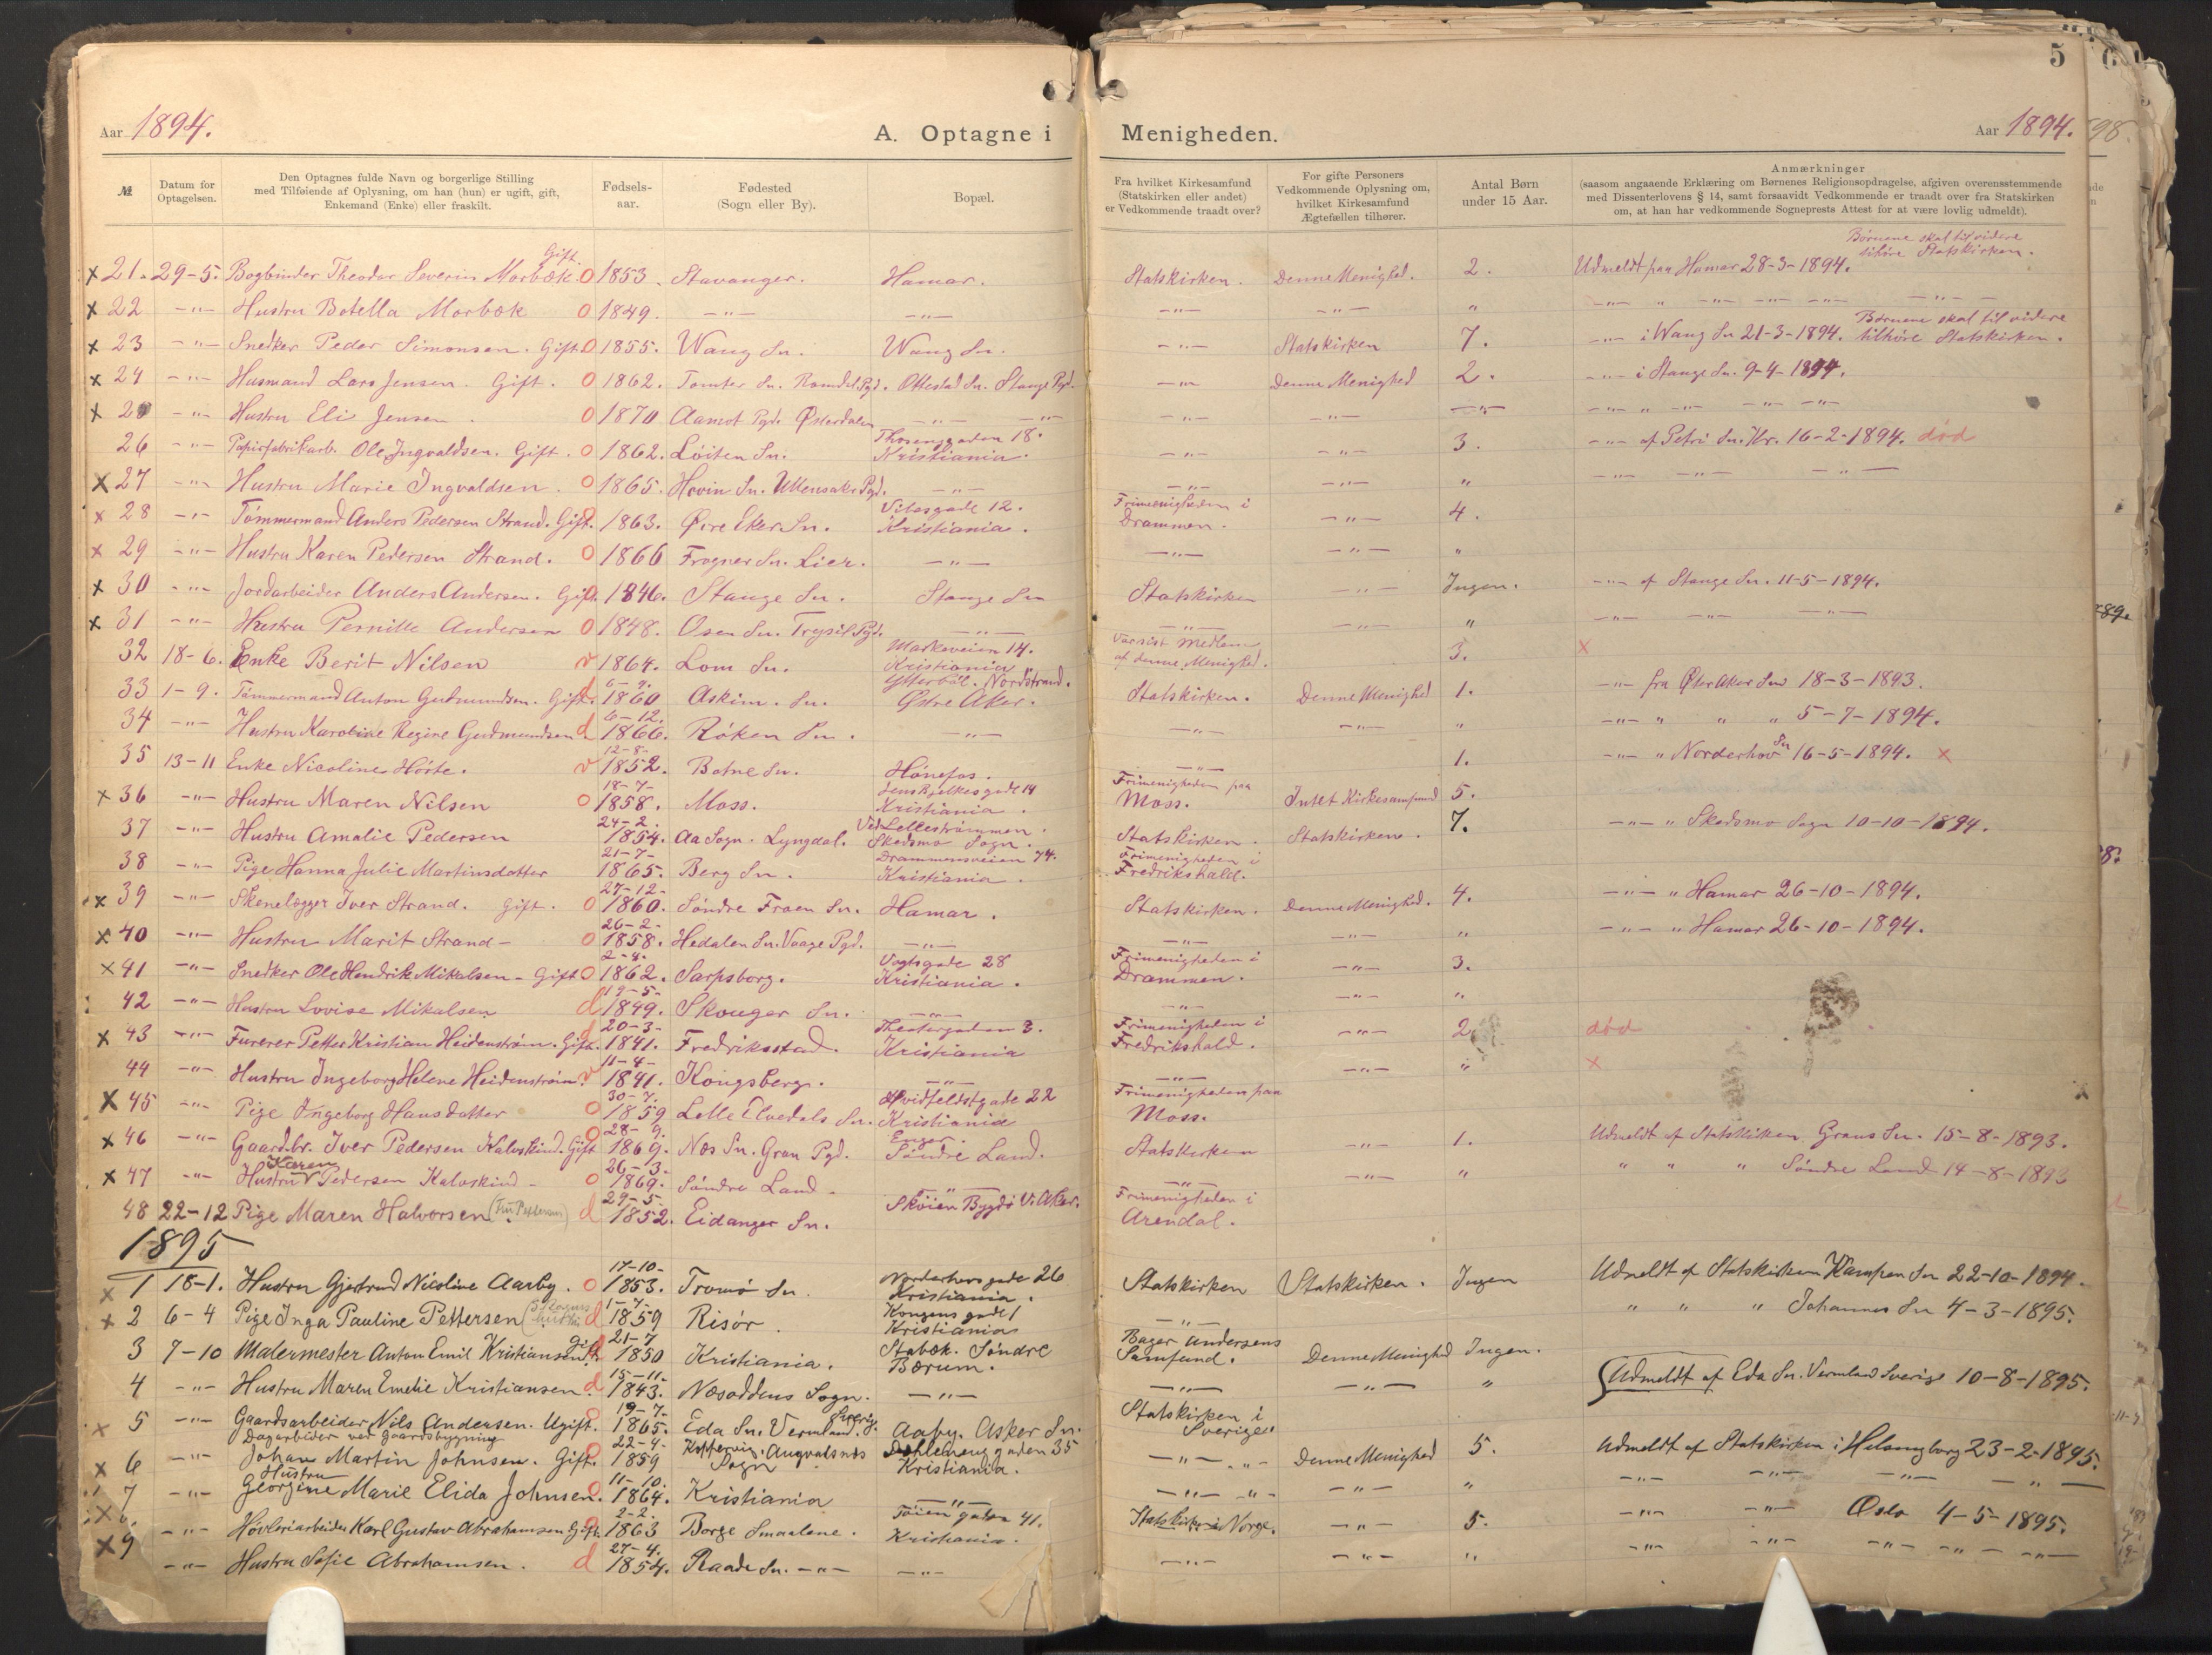 Aar 1894.
A. Optagne i Menigheden.
Aar 1894.
5
№
Datum for Optagelsen.
Den Optagnes fulde Navn og borgerlige Stilling
med Tilføiende af Oplysning, om han (hun) er ugift, gift,
Enkemand (Enke) eller fraskilt.
Fødsels-
aar.
Fødested
(Sogn eller By).
Bopæl.
Fra hvilket Kirkesamfund
(Statskirken eller andet)
er Vedkommende traadt over?
For gifte Personers
Vedkommende Oplysning om,
hvilket Kirkesamfund
Ægtefællen tilhører.
Antal Børn
under 15 Aar.
Anmærkninger
(saasom angaaende Erklæring om Børnenes Religionsopdragelse, afgiven overensstemmende
med Dissenterlovens § 14, samt forsaavidt Vedkommende er traadt over fra Statskirken
om, at han har vedkommende Sogneprests Attest for at være lovlig udmeldt).
x 21. 29-5. Bogbinder Theodor Severin Morbæk. Gift. O 1853. Stavanger. Hamar. Statskirken. Denne Menighed. 2. Udmeldt paa Hamar 28-3-1894. Børnene skal til videre tilhöre Statskirken.
x 22 -"- Hustru Botella Morbæk O 1849. -"- -"- -"- -"- " -"- " -"- -"- -"- -"-
x 23 -"- Snedker Peder Simonsen. Gift. O 1855. Wang Sn. Wang Sn. -"- Statskirken 7. -"- i Wang Sn 21-3-1894. Børnene skal til videre tilhöre Statskirken.
x 24 -"- Husmand Lars Jensen. Gift. O 1862. Tomter Sn. Romdal Pgd. Ottestad Sn. Stange Pgd. -"- Denne Menighed 2. -"- i Stange Sn. 9-4-1894.
x 25 -"- Hustru Eli Jensen. O 1870 Aamot Pgd. Østerdalen -"- -"- -"- -"- -"- -"- " -"- -"- -"-
26 -"- Papirfabrikarb. Ole Ingvaldsen. Gift. O 1862. Löiten Sn. Thorsenggaden 18. Kristiania. -"- -"- 3. -"- af Petri Sn. Kr. 16-2-1894. död
x 27 -"- Hustru Marie Ingvaldsen. O 1865. Hovin Sn. Ullensaker Pgd. -"- -"- -"- " -"- -"- -"-
x 28 -"- Tömmermand Anders Pedersen Strand. Gift. 1863. Øvre Eker Sn. Vibesgade 12. Kristiania. Frimenigheden i Drammen. -"- 4.
x 29 -"- Hustru Karen Pedersen Strand. O 1866 Frogner Sn. Lier. -"- -"- -"- "
x 30 -"- Jordarbeider Anders Andersen. Gift. O 1846. Stange Sn. Stange Sn Statskirken -"- Ingen. -"- af Stange Sn. 11-5-1894.
x 31 -"- Hustru Pernille Andersen O 1848. Osen Sn. Trysil Pgd. -"- -"- -"- " -"- -"- -"-
32 18-6. Enke Berit Nilsen v 1864. Lom Sn. Markeveien 14. Kristiania Var sist Medlem af denne Menighed. 3. x
33 1-9. Tömmermand Anton Gudmundsen. Gift. d 6-9. 1860 Askim. Sn. Ytterböl. Nordstrand. Østre Aker. Statskirken. Denne Menighed 1. -"- fra Øster Aker Sn 18-3-1893.
34 -"- Hustru Karoline Regine Gudmundsen d 6-12. 1866. Röken Sn. -"- -"- -"- " -"- " " " 5-7-1894.
35 13-11 Enke Nicoline Hörte. v 12-8- 1852. Botne Sn. Hönefos. -"- 1. -"- " Norderhov Sn 16-5-1894. x
x 36 -"- Hustru Maren Nilsen O 18-7- 1858. Moss. Jens Bjelkesgade 14 Kristiania. Frimenigheden paa Moss. Intet Kirkesamfund 5.
37 -"- Hustru Amalie Pedersen 24-2. 1854. Aa Sogn. Lyngdal. Ved Lillestrømmen. Skedsmo Sogn. Statskirken. Statskirkene. 7. -"- " Skedsmo Sogn 10-10-1894.
38 -"- Pige Hanna Julie Martinsdatter 21-7- 1865. Berg Sn. Drammensveien 74. Kristiania. Frimenigheden i Fredrikshald.
x 39 -"- Skenelægger Iver Strand. Gift. O 27-12- 1860. Söndre Fraen Sn. Hamar. Statskirken. Denne Menighed. 4. -"- " Hamar 26-10-1894.
x 40 -"- Hustru Marit Strand- O 26-2- 1858. Hedalen Sn. Vaage Pgd. -"- -"- -"- " -"- " Hamar 26-10-1894.
x 41 -"- Snedker Ole Hendrik Mikalsen- Gift O 2-4. 1862. Sarpsborg. Vogtsgade 28 Kristiania. Frimenigheden i Drammen. -"- 3.
42 -"- Hustru Lovise Mikalsen d 19-5- 1849. Skouger Sn. -"- -"- -"- "
x 43 -"- Furerer Petter Kristian Heidenström. Gift. d 20-3- 1841. Fredriksstad. Theatergaden 3. Kristiania Frimenigheden i Fredrikshald. -"- 2 död
44 -"- Hustru Ingeborg Helene Heidenström. v 11-4- 1841. Kongsberg. -"- -"- -"- " x
x 45 -"- Pige Ingeborg Hansdatter O 30-7. 1859 Lille Elvedals Sn. Hvidfeldtsgade 22 Kristiania Frimenigheden paa Moss.
x 46 -"- Gaardbr. Iver Pedersen Kalvskind. Gift O 28-9. 1869. Næs Sn. Gran Pgd. Enger. Söndre Land. Statskirken -"- 1. Udmeldt af Statskirken Grans Sn. 15-8-1893.
x 47 -"- Hustru Karen Pedersen Kalvskind- O 26-3- 1869. Söndre Land- -"- -"- -"- " " " " Söndre Land 14-8-1893
48 22-12 Pige Maren Halvorsen (Fru Pettersen) d 29-5- 1852. Eidanger Sn. Sköien Bygdö V. Aker. Frimenigheden i Arendal.
1895
x 1 18-1. Hustru Gjertrud Nicoline Aarby. O 17-10- 1853. Tromö Sn Norderhovsgade 26 Kristiania. Statskirken Statskirken. Ingen Udmeldt af Statskirken Kampen Sn 22-10-1894.
x 2 6-4 Pige Inga Pauline Pettersen d 1-7- 1859 Risör. Kongensgade 1 Kristiania -"- " " " Johannes Sn 4-3-1895.
3 7-10 Malermester Anton Emil Kristiansen. Gift d 21-7 1850 Kristiania. Stabæk. Söndre Bærum. Bager Andersens Samfund. Denne Menighed Ingen.
4 -"- Hustru Maren Emelie Kristiansen. d 15-11- 1843. Næsoddens Sogn. -"- -"- -"- "
x 5 -"- Gaardsarbeider Nils Andersen. Ugift. O 19-7- 1865. Eda Sn. Vermland. Sverig. Aaby. Asker Sn. Statskirken i Sverige. Udmeldt af Eda Sn. Vermland Sverige 10-8-1895.
x 6 -"- Dagarbeider ved Gaardsbygning Johan Martin Johnsen. Gift. O 22-4- 1859 Koppervig. Augvalsnæs Sogn Dæhlenenggaden 35 Kristiania. -"- -"- Denne Menighed 5. Udmeldt af Statskirken i Helsingborg 23-2-1895.
7 -"- Hustru Georgine Marie Elida Johnsen. O 11-10. 1864. Kristiania -"- -"- -"- -"- " -"- -"- -"- -"-
x 8. -"- Hövleriarbeider Karl Gustav Abrahamsen Gift. O 2-2. 1863 Borge Smaalene. Töiengaden 41. Kristiania. Statskirken i Norge. -"- 5. -"- -"- Oslo 4-5-1895.
x 9 -"- Hustru Sofie Abrahamsen. d 27-4. 1854. Raade Sn. -"- -"- -"- -"- " -"- -"- -"- -"- -"-